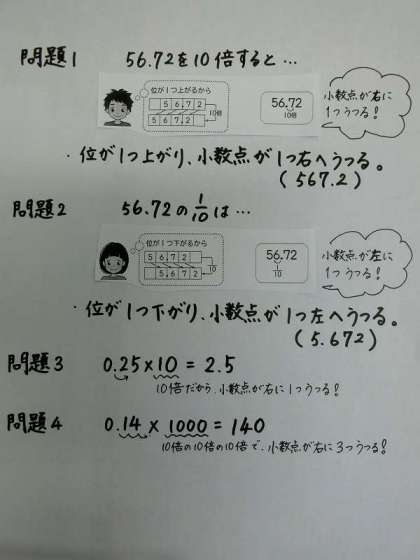 問題1 56.72を10倍すると…
位が1つ上がるから
5 6.7 2
5 6 7.2
10倍
56.72
10倍
小数点が右に
1つうつる!
・位が1つ上がり、小数点が1つ右へうつる。
(567.2)
問題2 56.72の1/10は…
位が1つ下がるから
5 6.7 2
5.6 7 2
1/10
56.72
1/10
小数点が左に
1つうつる!
・位が1つ下がり、小数点が1つ左へうつる。
(5.672)
問題3 0.25×10=2.5
10倍だから、小数点が右に1つうつる!
問題4 0.14×1000=140
10倍の10倍の10倍で、小数点が右に3つうつる!